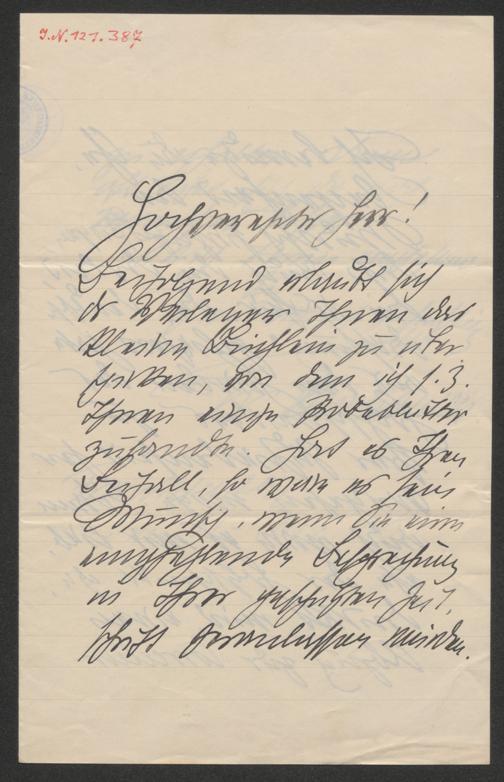 J.N. 121.387
Hochverehrter Herr!
Beifolgend erlaubt sich
der Verleger Ihnen das
kleine Büchlein zu über
schicken, von dem ich s. Z.
Ihnen einige Probeblätter
zusandte. Hat es Ihren
Beifall, so wäre es sein
Wunsch, wenn Sie eine
empfehlende Besprechung
in Ihrer geschätzten Zeit-
schrift veranlassen würden.